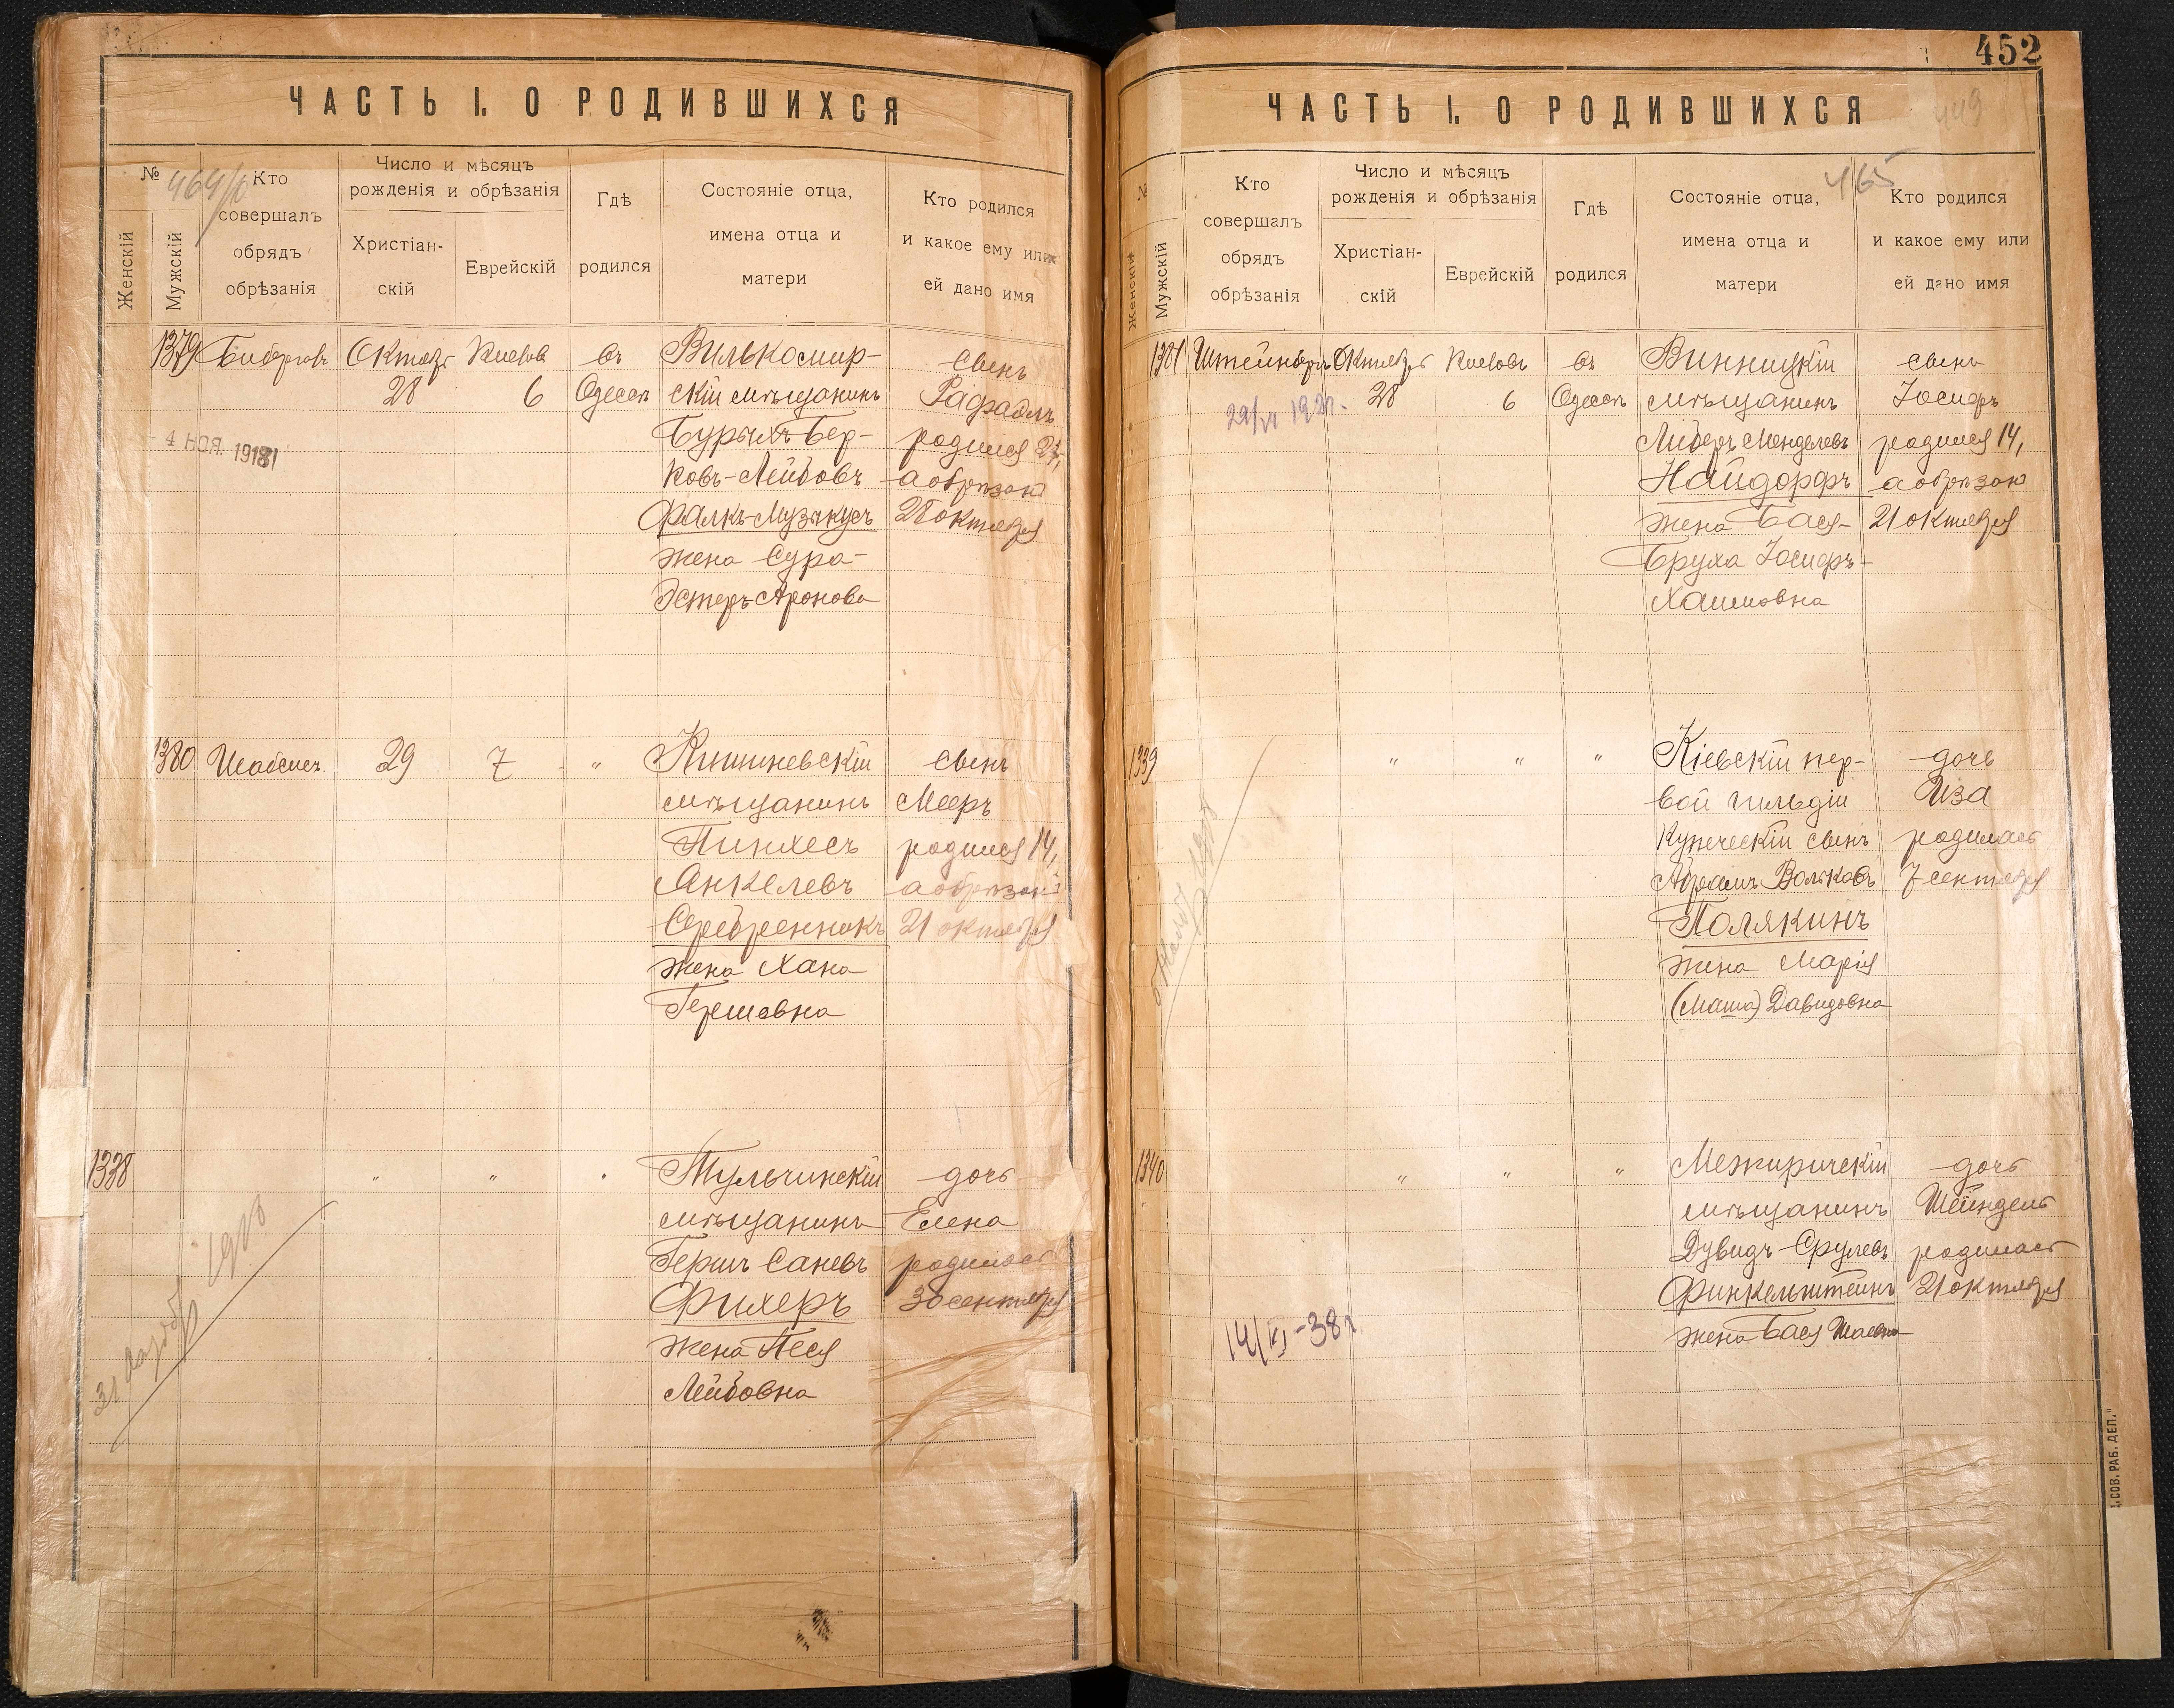 ЧАСТЬ I. О РОДИВШИХСЯ
№
464/
Женскій
Мужскій
Кто
совершалъ
обрядъ
обрѣзанія
Число и мѣсяцъ
рожденія и обрѣзанія
Христіан-
скій
Еврейскій
Гдѣ
родился
Состояніе отца,
имена отца и
матери
Кто родился
и какое ему или
ей дано имя
1379
Октябр
28
6
въ
Одессѣ
Вилькомир-
скій мѣщанинъ
Бер-
ковъ-Лейбовъ
Фалкъ-Музыкусъ
жена Сура-
Эстеръ Аронова
сынъ
Рафаэлъ
родился
а обрѣзанъ
28 октября
4 НОЯ. 1918
1380
Шабсисъ
29
7
"
Кишиневскій
мѣщанинъ
Пинхесъ
Янкелевъ
Серебренникъ
жена Хана
Гершовна
сынъ
Мееръ
родился 14,
а обрѣзанъ
21 октября
1338
"
"
"
Тульчинскій
мѣщанинъ
Гершъ Саневъ
Фихеръ
жена Песя
Лейбовна
дочь
Елена
родилась
30 сентября
452
449
ЧАСТЬ I. О РОДИВШИХСЯ
№
465
Женскій
Мужскій
Кто
совершалъ
обрядъ
обрѣзанія
Число и мѣсяцъ
рожденія и обрѣзанія
Христіан-
скій
Еврейскій
Гдѣ
родился
Состояніе отца,
имена отца и
матери
Кто родился
и какое ему или
ей дано имя
1381
Штейнбергъ
Октября
28
6
въ
Одессѣ
Винницкій
мѣщанинъ
Либеръ Менделевъ
Найдорфъ
жена Бася-
Бруха Іосифъ-
Хаимовна
сынъ
Іосифъ
родился 14,
а обрѣзанъ
21 октября
1339
"
"
"
Кіевскій пер-
вой гильдіи
купеческій сынъ
Абрамъ Вольковъ
Полякинъ
жена Марія
(Маша) Давидовна
дочь
Иза
родилась
7 сентября
1340
"
"
"
Межиричскій
мѣщанинъ
Дувидъ-Срулевъ
Финкельштейнъ
жена Бася Шаевна
дочь
Шейндель
родилась
21 октября
14/VI-38г.
СОВ. РАБ. ДЕП."